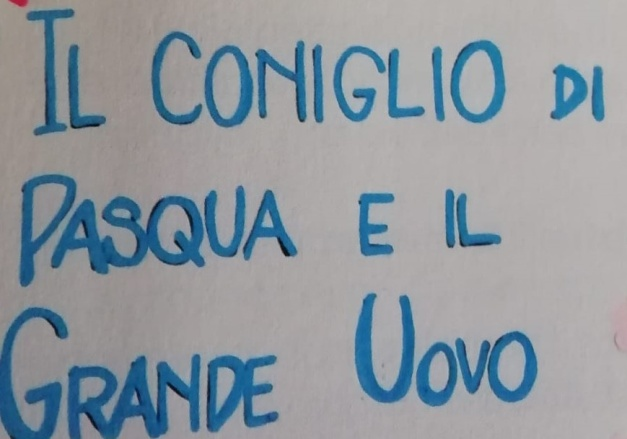 IL CONIGLIO DI
PASQUA E IL
GRANDE UOVO